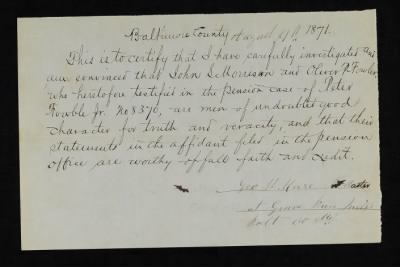 Baltimore County August 4th 1871.
This is to certify that I have carefully investigated and
am convinced that John S. Morrison and Oliver P. Fowler,
who heretofore testified in the pension case of Peter
Fowble Jr. No 8370, are men of undoubted good
character for truth and veracity, and that their
statements in the affidavit filed in the pension
office are worthy of full faith and credit.
Geo H. Master
at Grave Run Mills
Balt Co Md